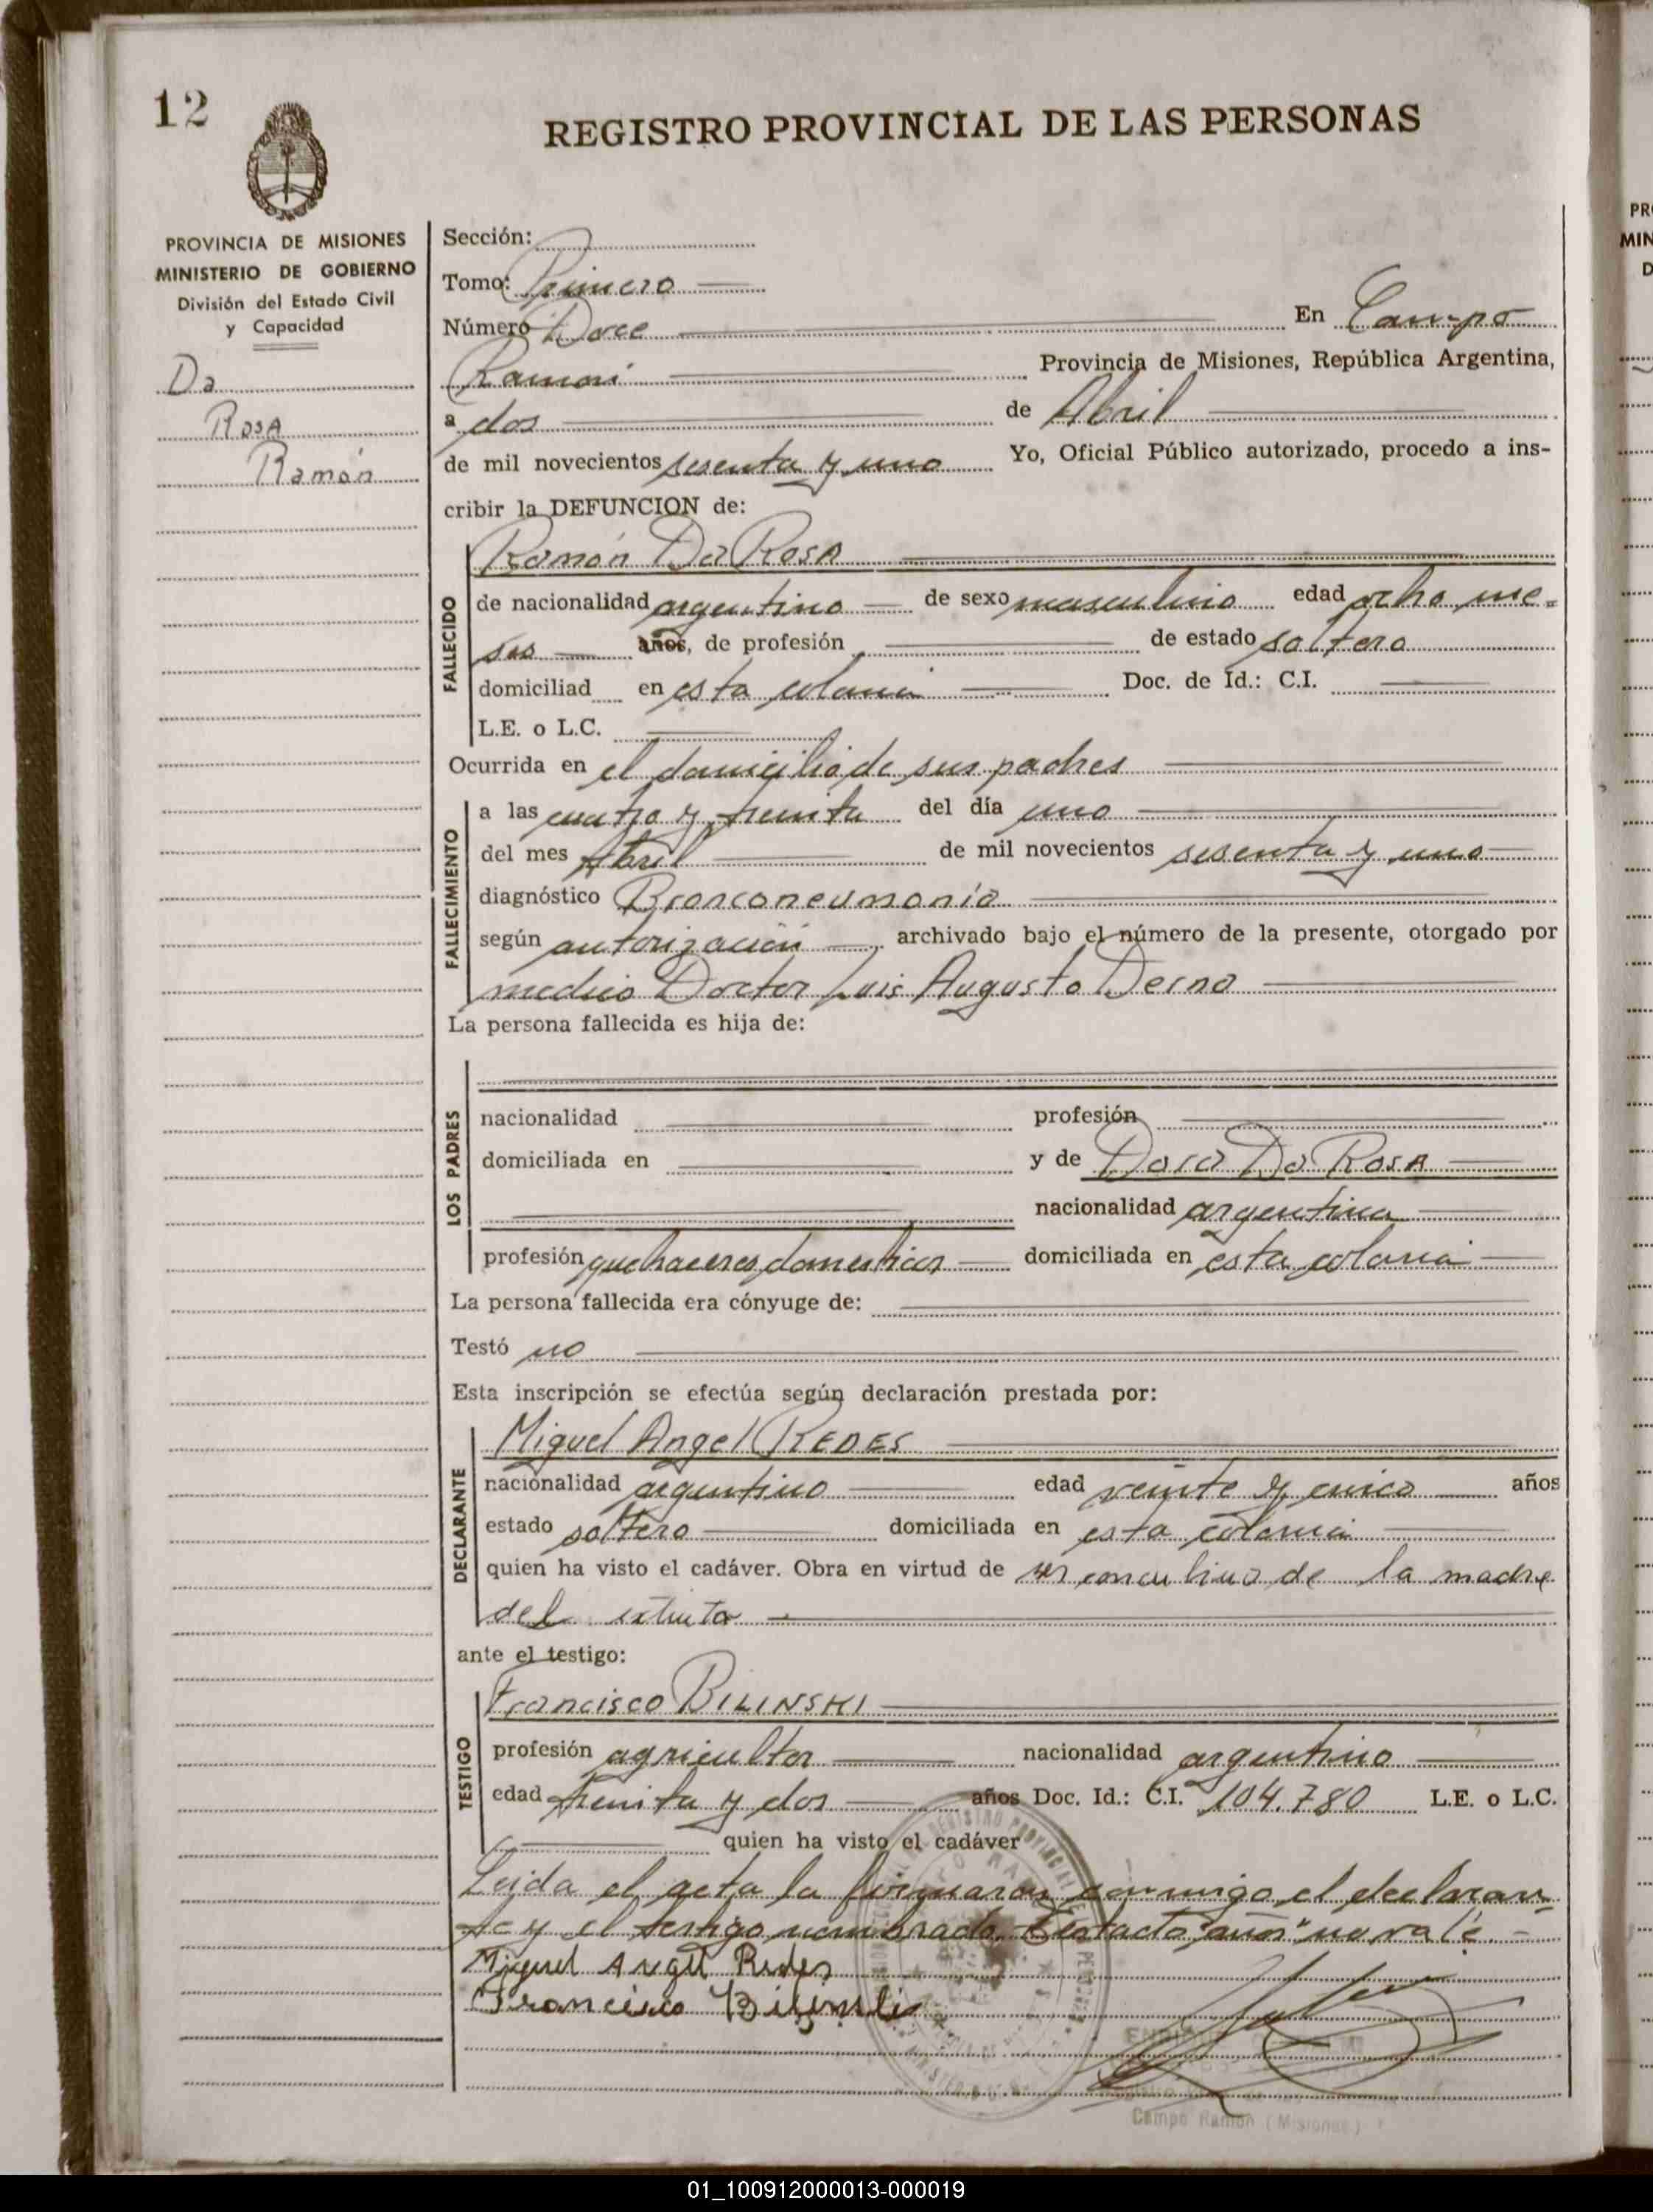 12
REGISTRO PROVINCIAL DE LAS PERSONAS
PROVINCIA DE MISIONES
MINISTERIO DE GOBIERNO
División del Estado Civil
y Capacidad
Da
Rosa
Ramón
Sección:
Tomo: Primero
Número Doce En Campo
Ramón Provincia de Misiones, República Argentina,
a dos de Abril
de mil novecientos sesenta y uno Yo, Oficial Público autorizado, procedo a ins-
cribir la DEFUNCION de:
Ramón Da Rosa
FALLECIDO
de nacionalidad argentino de sexo masculino edad ocho me=
ses años, de profesión de estado soltero
domiciliad en esta colonia Doc. de Id.: C.I.
L.E. o L.C.
Ocurrida en el domicilio de sus padres
FALLECIMIENTO
a las cuatro y treinta del día uno
del mes Abril de mil novecientos sesenta y uno
diagnóstico Bronconeumonía
según autorización, archivado bajo el número de la presente, otorgado por
medico Doctor Luis Augusto Derna
La persona fallecida es hija de:
LOS PADRES
nacionalidad profesión
domiciliada en y de Dora Da Rosa
nacionalidad argentina
profesión quehaceres domesticos domiciliada en esta colonia
La persona fallecida era cónyuge de:
Testó no
Esta inscripción se efectúa según declaración prestada por:
DECLARANTE
Miguel Angel REDES
nacionalidad argentino edad veinte y cinco años
estado soltero domiciliada en esta colonia
quien ha visto el cadáver. Obra en virtud de ser concubino de la madre
del extinto
ante el testigo:
TESTIGO
Francisco BILINSKI
profesión agricultor nacionalidad argentino
edad treinta y dos años Doc. Id.: C.I. 104.780 L.E. o L.C.
quien ha visto el cadáver
Leida el acta la firmaron conmigo el declaran=
te y el testigo nombrado. Testado: "años" no vale.-
Miguel Angel Redes
Francisco Bilinski
Campo Ramón (Misiones)
PR
MIN
D
01_100912000013-000019